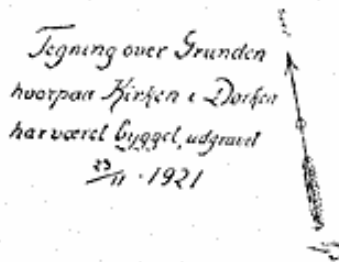 Tegning over Grunden
hvorpaa Kirken i Dorken
har været bygget, udgravet
23/11 - 1921